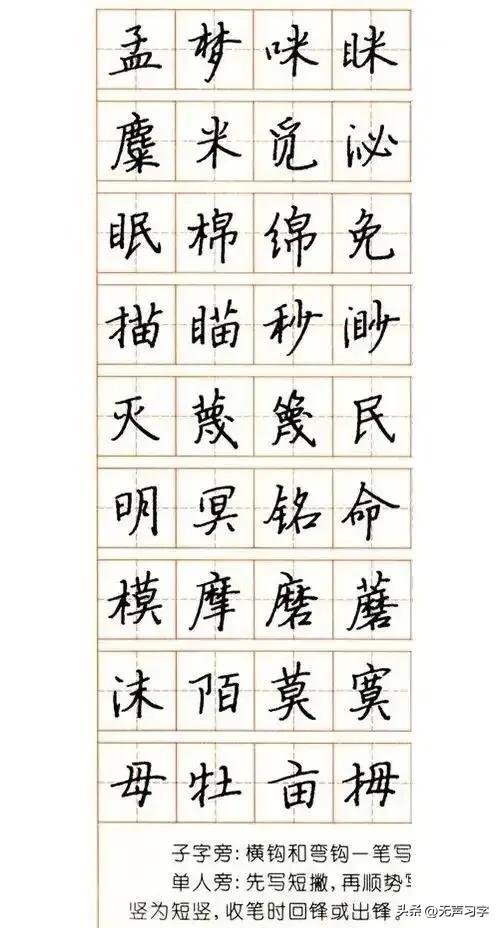 孟梦咪眯
麋米觅泌
眠棉绵免
描瞄秒渺
灭蔑篾民
明冥铭命
模摩磨蘑
沫陌莫寞
母牡亩拇
子字旁:横钩和弯钩一笔写
单人旁:先写短撇,再顺势
竖为短竖,收笔时回锋或出锋。
头条 @无声习字